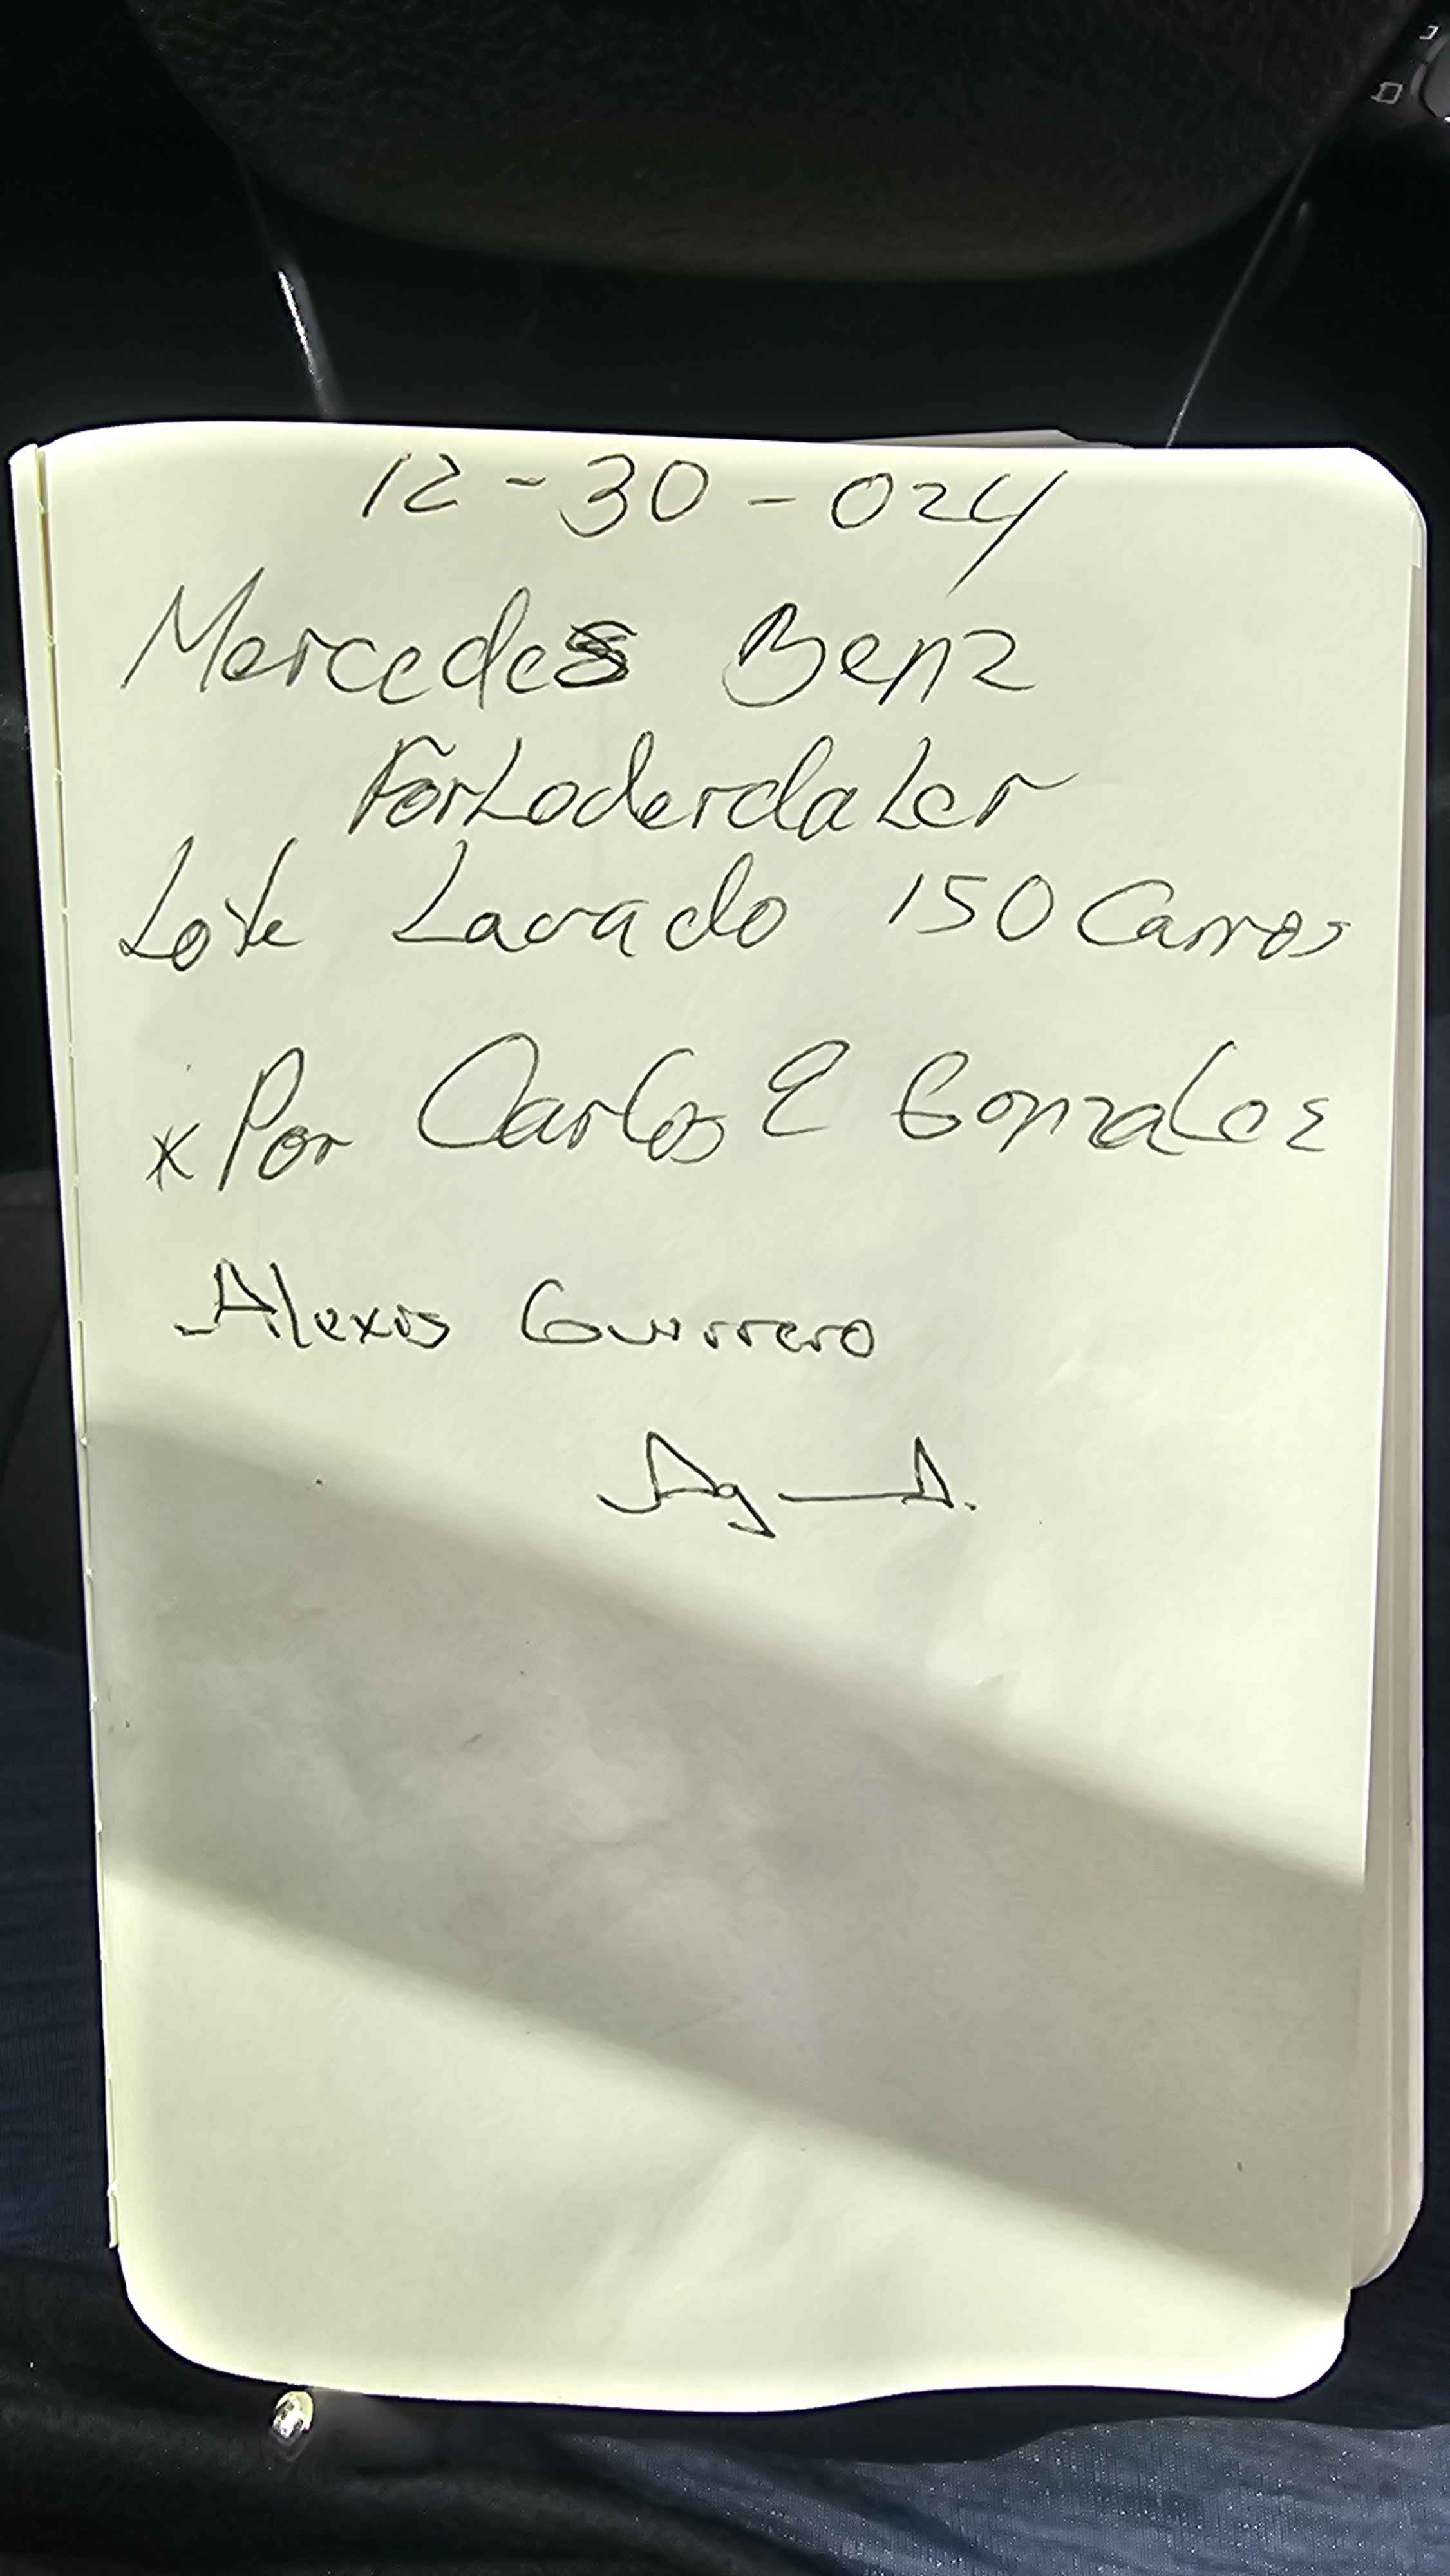 12-30-024
Mercedes Benz
ForLoderdaLer
Lote Lavado 150 Carros
*Por Carlos E Gonzalez
Alexis Guerrero